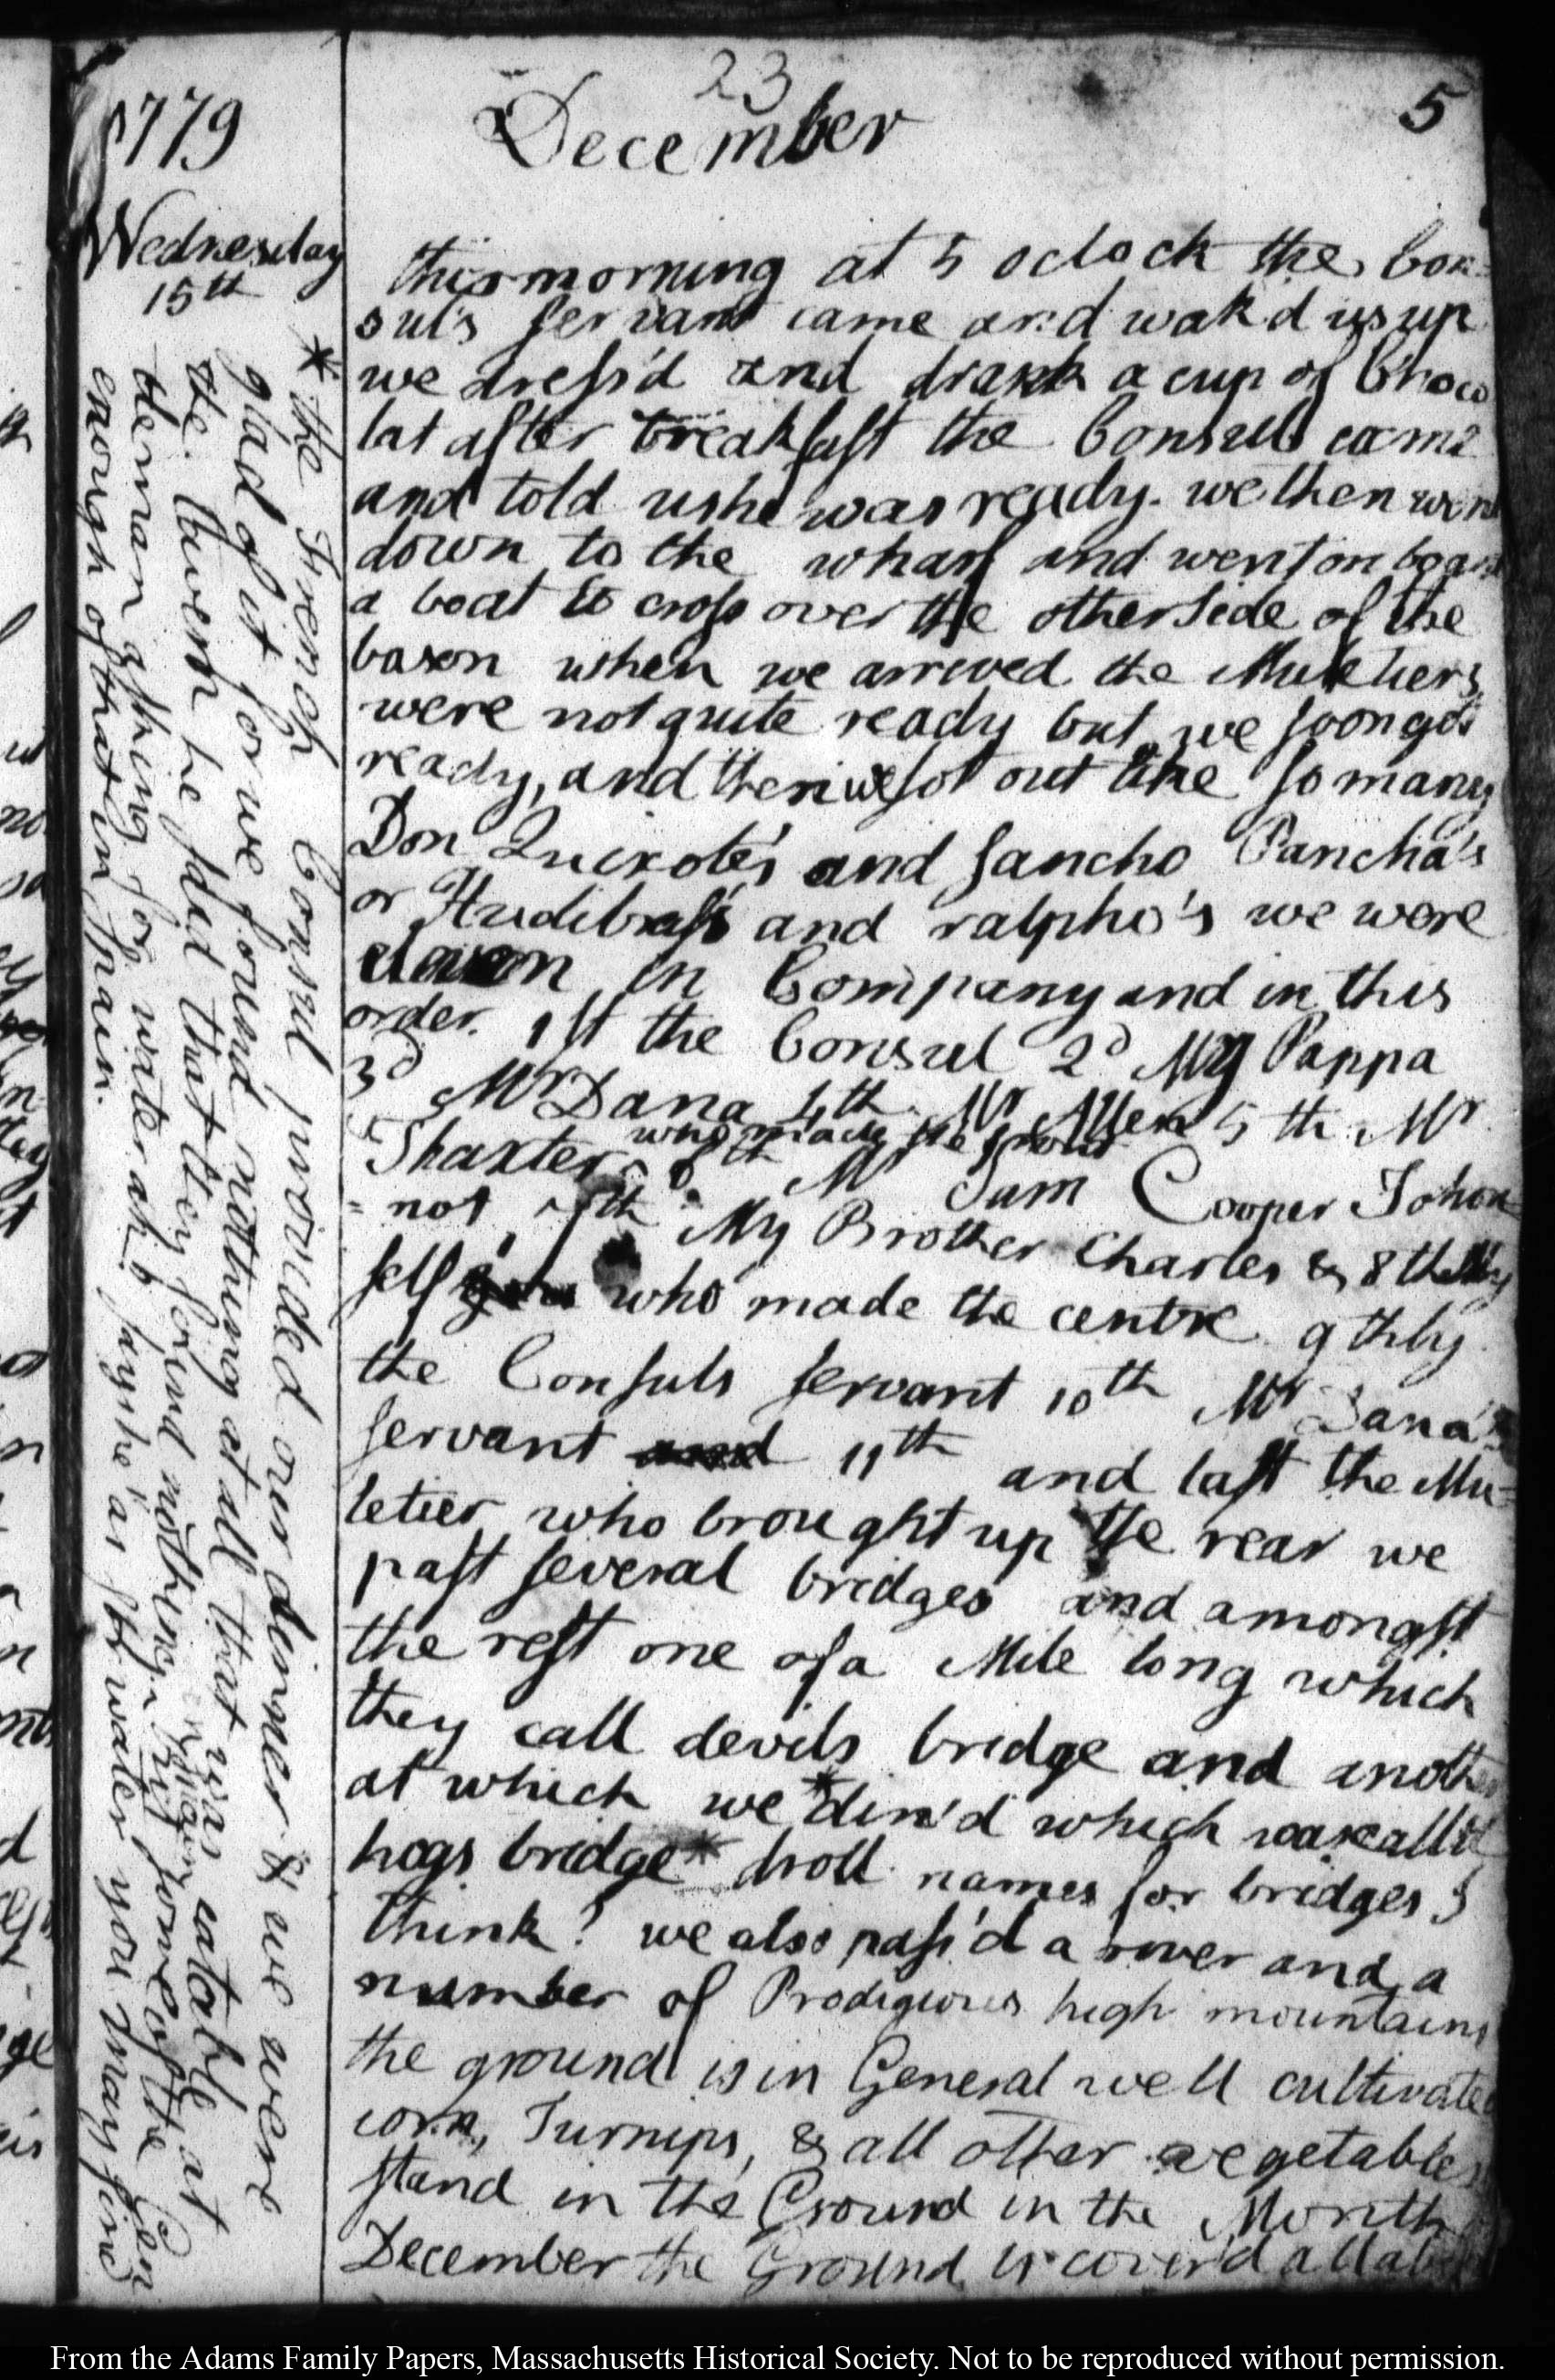 1779
23
December
5
Wednesday
15th
this morning at 5 oclock the Con=
suls servant came and wak'd us up
we dress'd and drank a cup of Choco
lat after breakfast the Consul came
and told us he was ready. we then went
down to the wharf and went on board
a boat to cross over the other side of the
bason when we arrived the Muletiers
were not quite ready but we soon got
ready, and then we sot out like so many
Don Quixote's and Sancho Pancha's
or Hudibras's and ralpho's we were
eleven in Company and in this
order. 1st the Consul 2d My Pappa
3d Mr Dana 4th Mr Allen 5th Mr
who made the front
Thaxter 6th Mr Sam Cooper Johon
=not, 7th My Brother Charles & 8thly My
self who made the centre 9thly
the Consuls servant 10th Mr Dana's
servant and 11th and last the Mu=
letier who brought up the rear we
past several bridges and amongst
the rest one of a Mile long which
they call devils bridge and another
at which we *din'd which was calld
hogs bridge* droll names for bridges I
think! we also pass'd a river and a
number of Prodigious high mountains
the ground is in General well cultivated
corn, Turnips, & all other vegetables
stand in the Ground in the Month
December the Ground is cover'd all
* the French Consul provided our dinner & we were
glad of it for we found nothing at all that was eatable at
the tavern he said that they found nothing but some of the Gen
tleman asking for water ah! says he as for water you may find
enough of that in Spain.
From the Adams Family Papers, Massachusetts Historical Society. Not to be reproduced without permission.